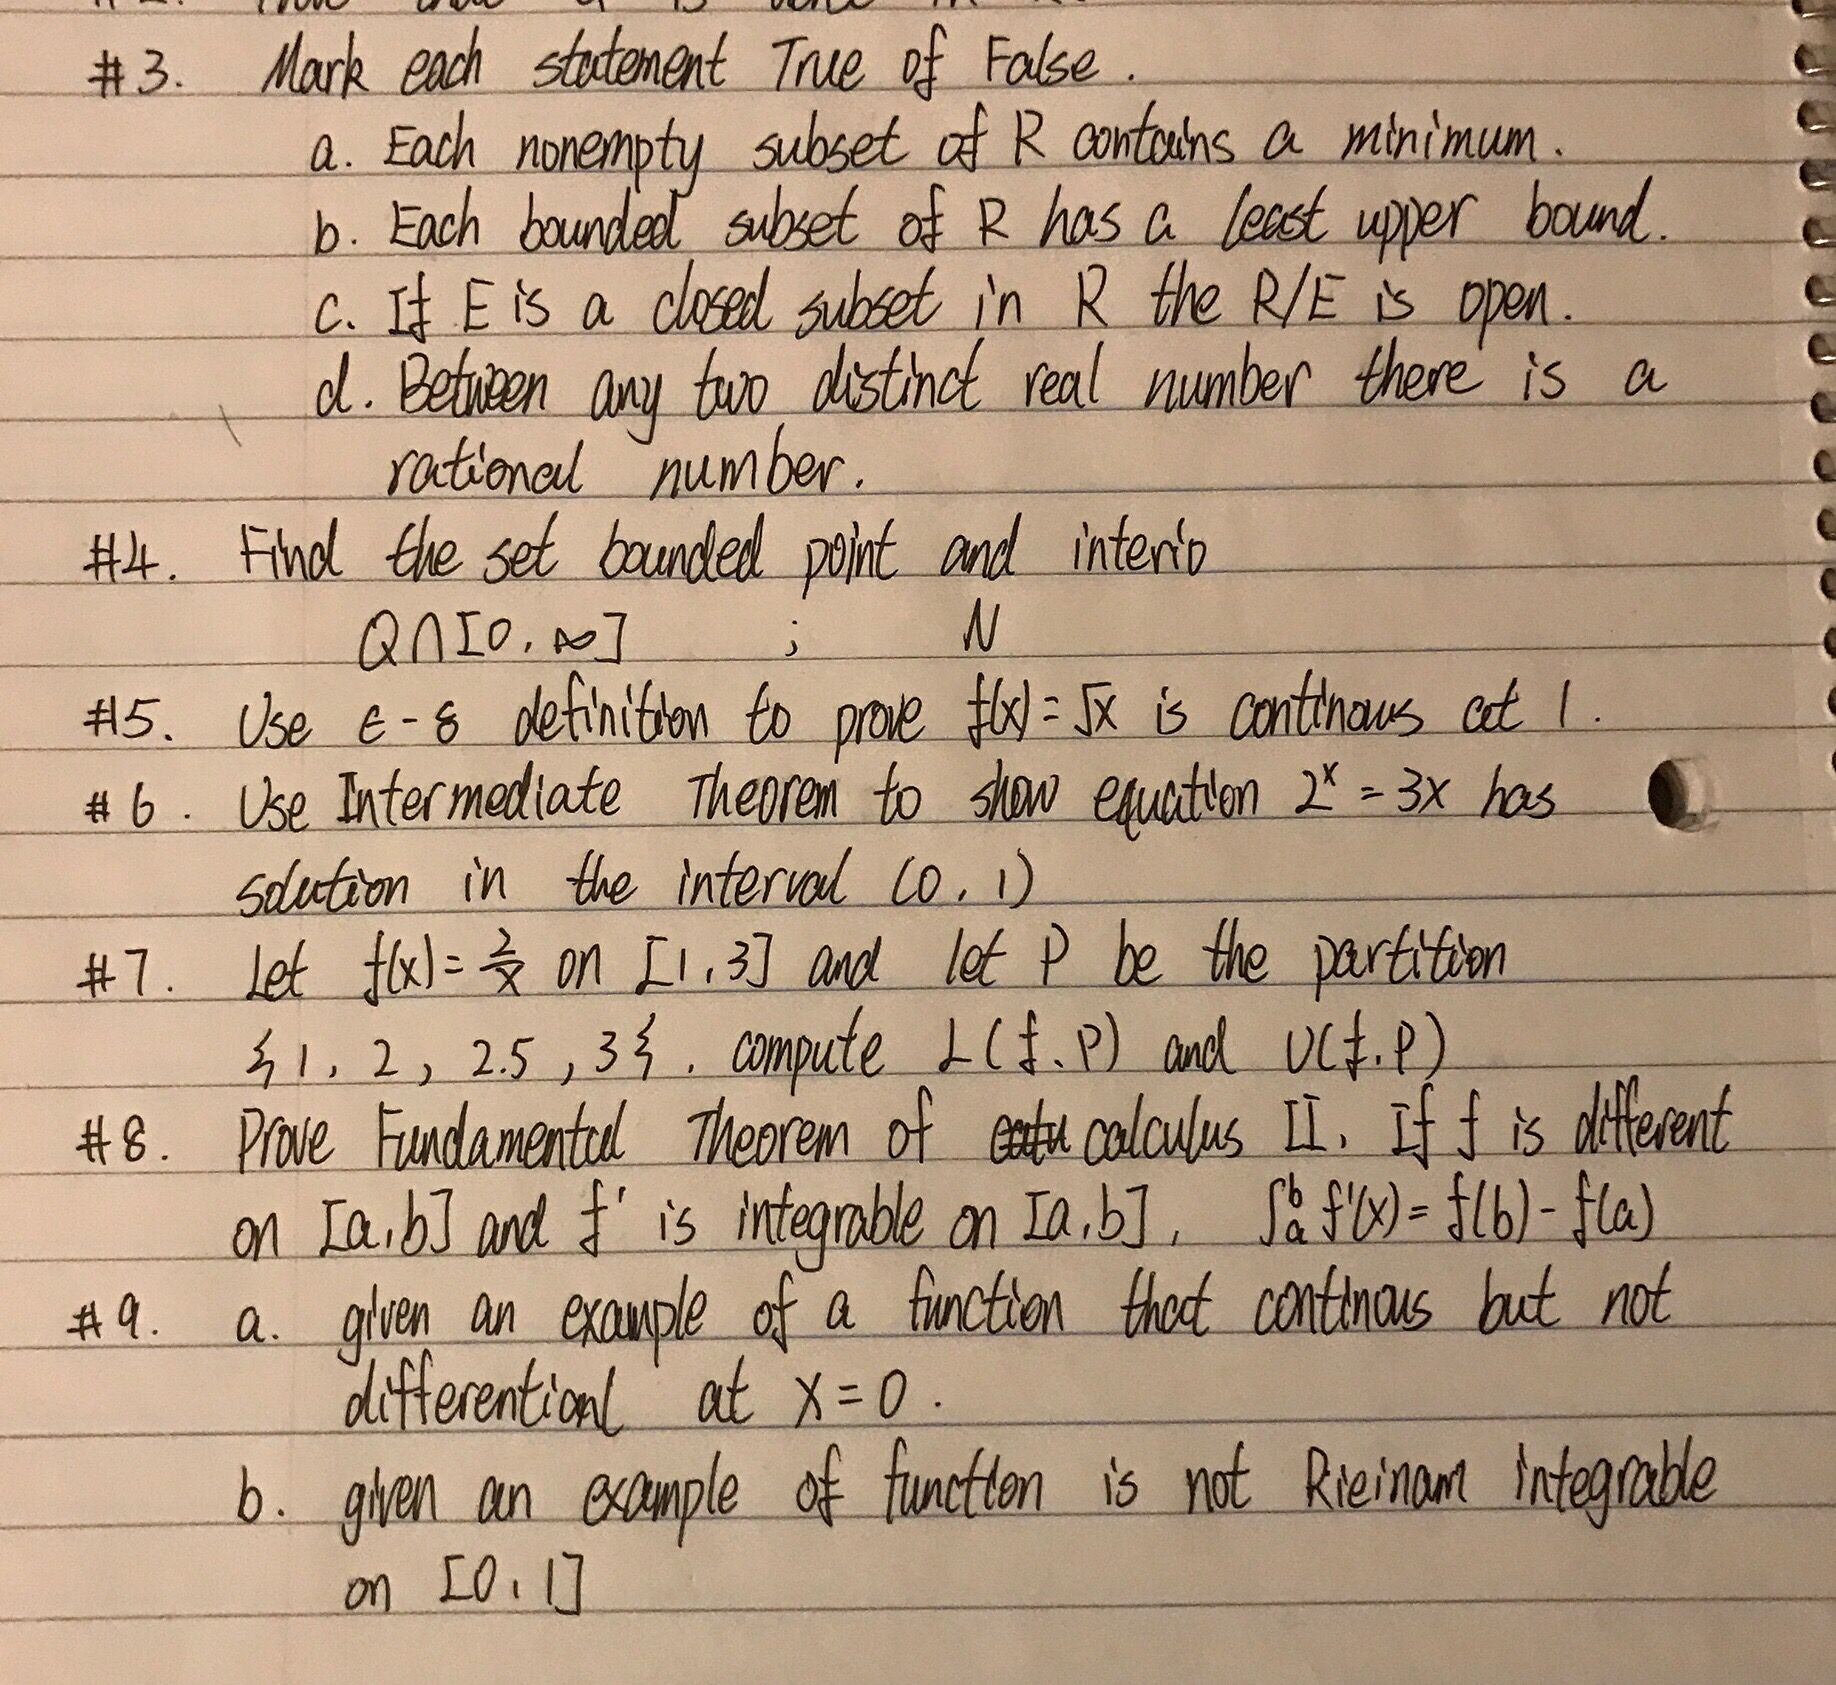 #3. Mark each statement True of False.
a. Each nonempty subset of R contains a minimum.
b. Each bounded subset of R has a least upper bound.
c. If E is a closed subset in R the R/E is open.
d. Between any two distinct real number there is a
rational number.
#4. Find the set bounded point and interio
Q∩[0,∞] ; N
#5. Use ε-δ definition to prove f(x)=√x is continous at 1.
#6. Use Intermediate Theorem to show equation 2ˣ=3x has
solution in the interval (0,1)
#7. Let f(x)=2/x on [1,3] and let P be the partition
{1, 2, 2.5, 3}. compute L(f.P) and U(f.P)
#8. Prove Fundamental Theorem of calculus II. If f is different
on [a,b] and f' is integrable on [a,b], ∫ₐᵇ f'(x)=f(b)-f(a)
#9. a. given an example of a function that continous but not
differentional at x=0.
b. given an example of function is not Rieinam integrable
on [0,1]